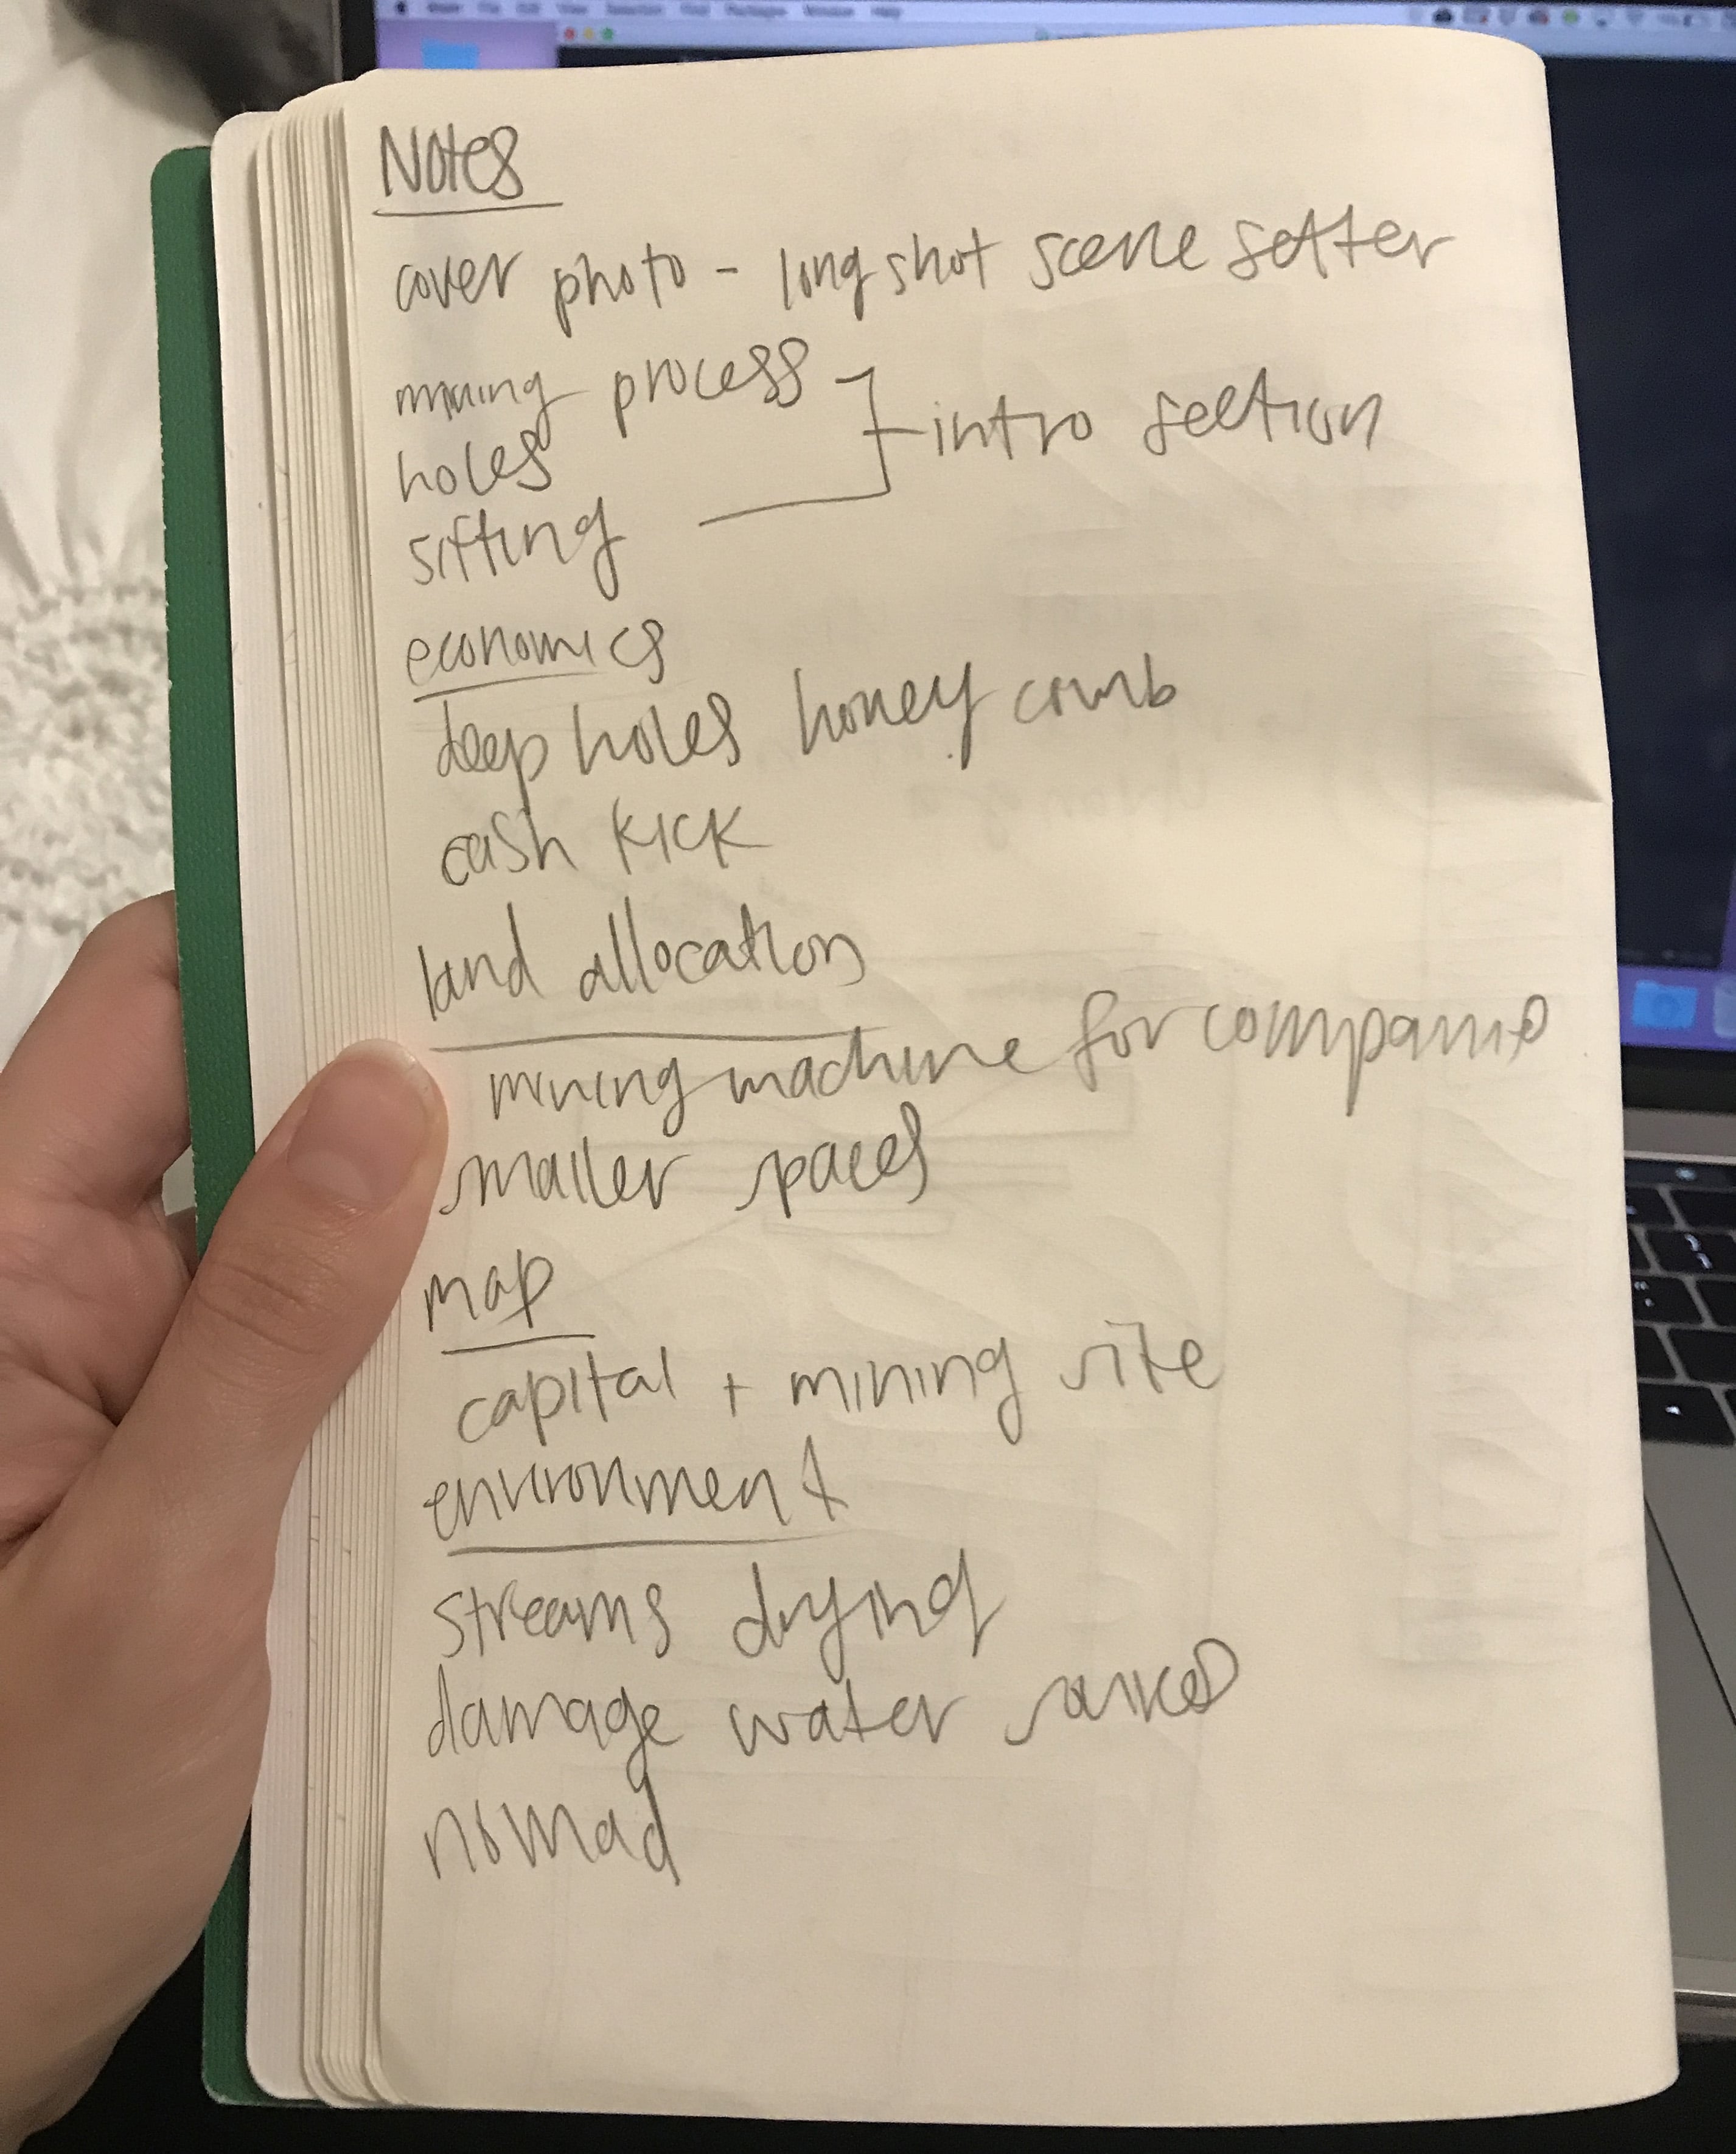 Notes
cover photo - long shot scene setter
mining process
holes
sifting
intro section
economics
deep holes honey comb
cash kick
land allocation
mining machine for companies
smaller spaces
map
capital + mining site
environment
streams drying
damage water sources
nomad